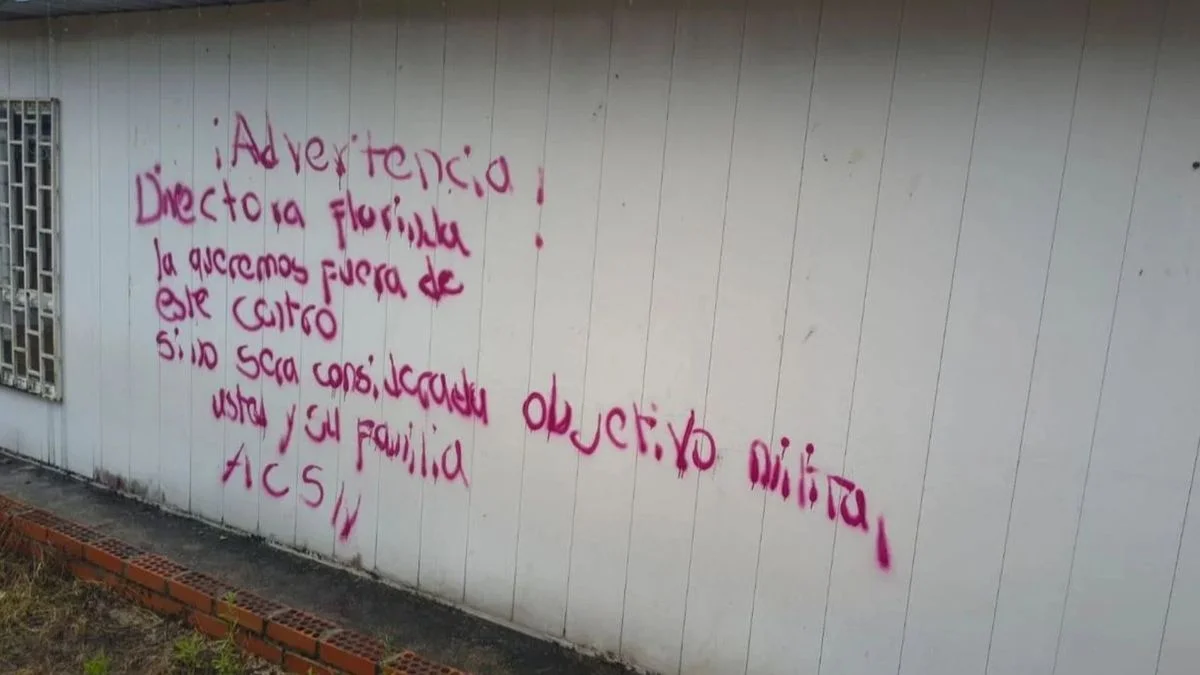 ¡Advertencia!
Directora Florinda
la queremos fuera de
este centro
sino sera considerada objetivo militar,
usted y su familia
ACSN